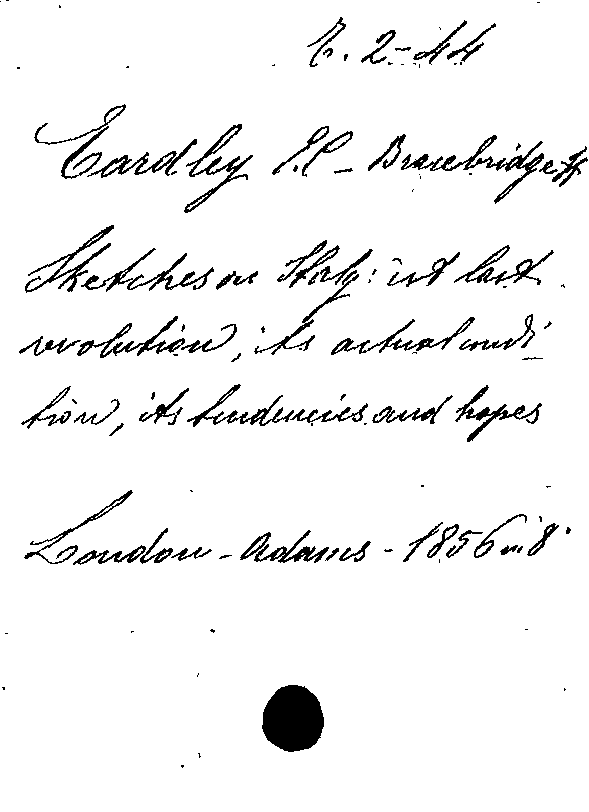 E. 2-44
Eardley J.C - Bracebridge H
Sketches on Italy: ist last
revolution, its actual condi
tion, its tendencies and hopes
London - Adams - 1856 in 8°